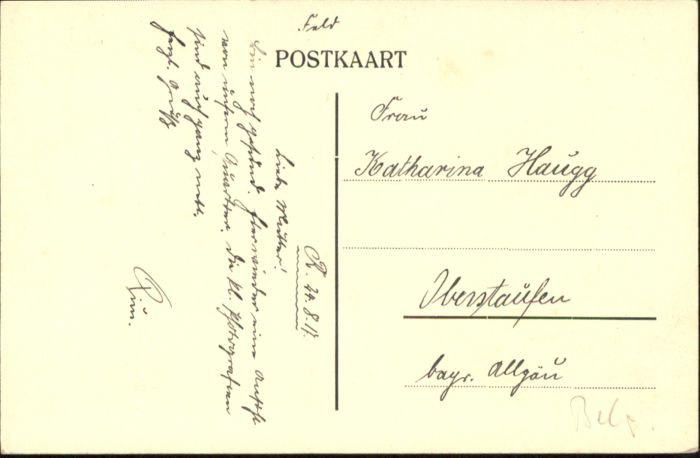 Feld
POSTKAART
Frau
Katharina Haugg
Oberstaufen
bayr. Allgäu
Belg.
R. 24.8.17.
Liebe Mutter!
Bin noch gesund. Hier wieder eine Ansicht
von unserm Quartier. Die kl. Photografien
sind auch ganz nett.
Herzl. Grüße